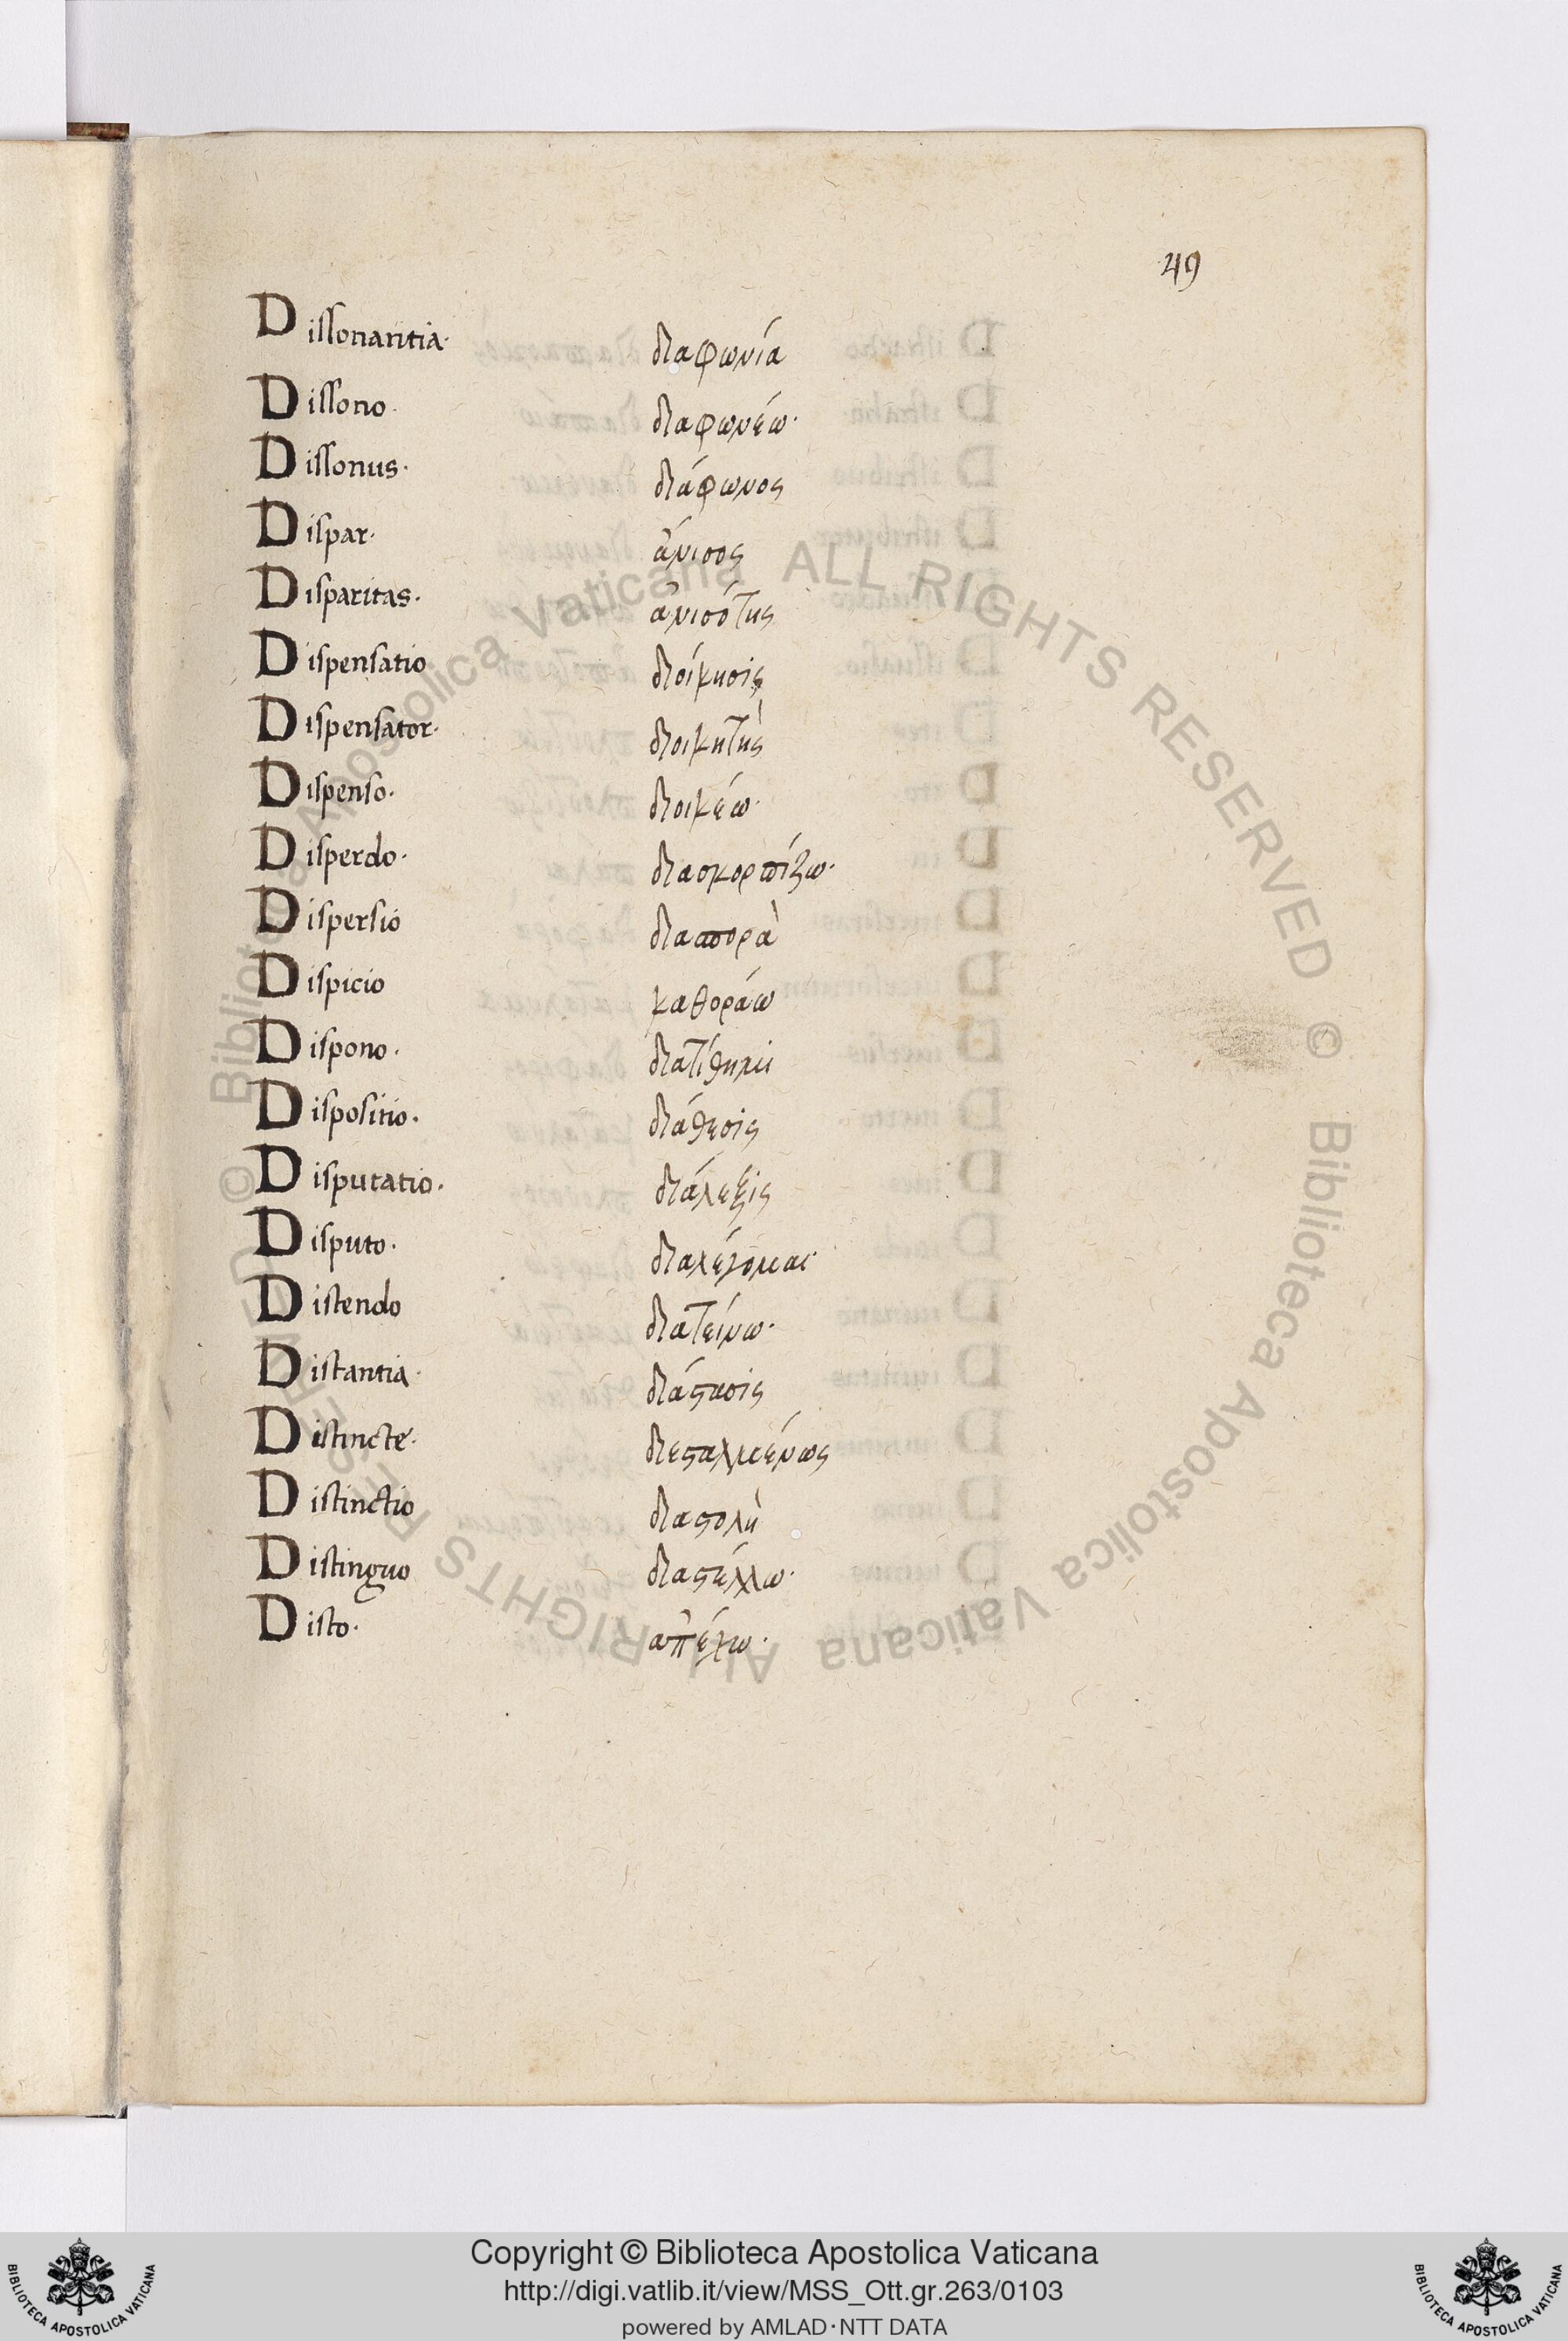 49
Dissonantia· διαφωνία
Dissono· διαφωνέω·
Dissonus· διάφωνος
Dispar· ἄνισος
Disparitas· ἀνισότης
Dispensatio διοίκησις
Dispensator· διοικητὴς
Dispenso· διοικέω·
Disperdo· διασκορπίζω·
Dispersio διασπορὰ
Dispicio καθοράω
Dispono· διατίθημι
Dispositio· διάθεσις
Disputatio· διάλεξις
Disputo· διαλέγομαι
Distendo διατείνω·
Distantia· διάστασις
Distincte· διεσταλμένως
Distinctio διαστολὴ
Distinguo διαστέλλω·
Disto· ἀπέχω·
© Biblioteca Apostolica Vaticana ALL RIGHTS RESERVED © Biblioteca Apostolica Vaticana ALL RIGHTS RESERVED
Copyright © Biblioteca Apostolica Vaticana
http://digi.vatlib.it/view/MSS_Ott.gr.263/0103
powered by AMLAD·NTT DATA
BIBLIOTECA APOSTOLICA VATICANA
BIBLIOTECA APOSTOLICA VATICANA